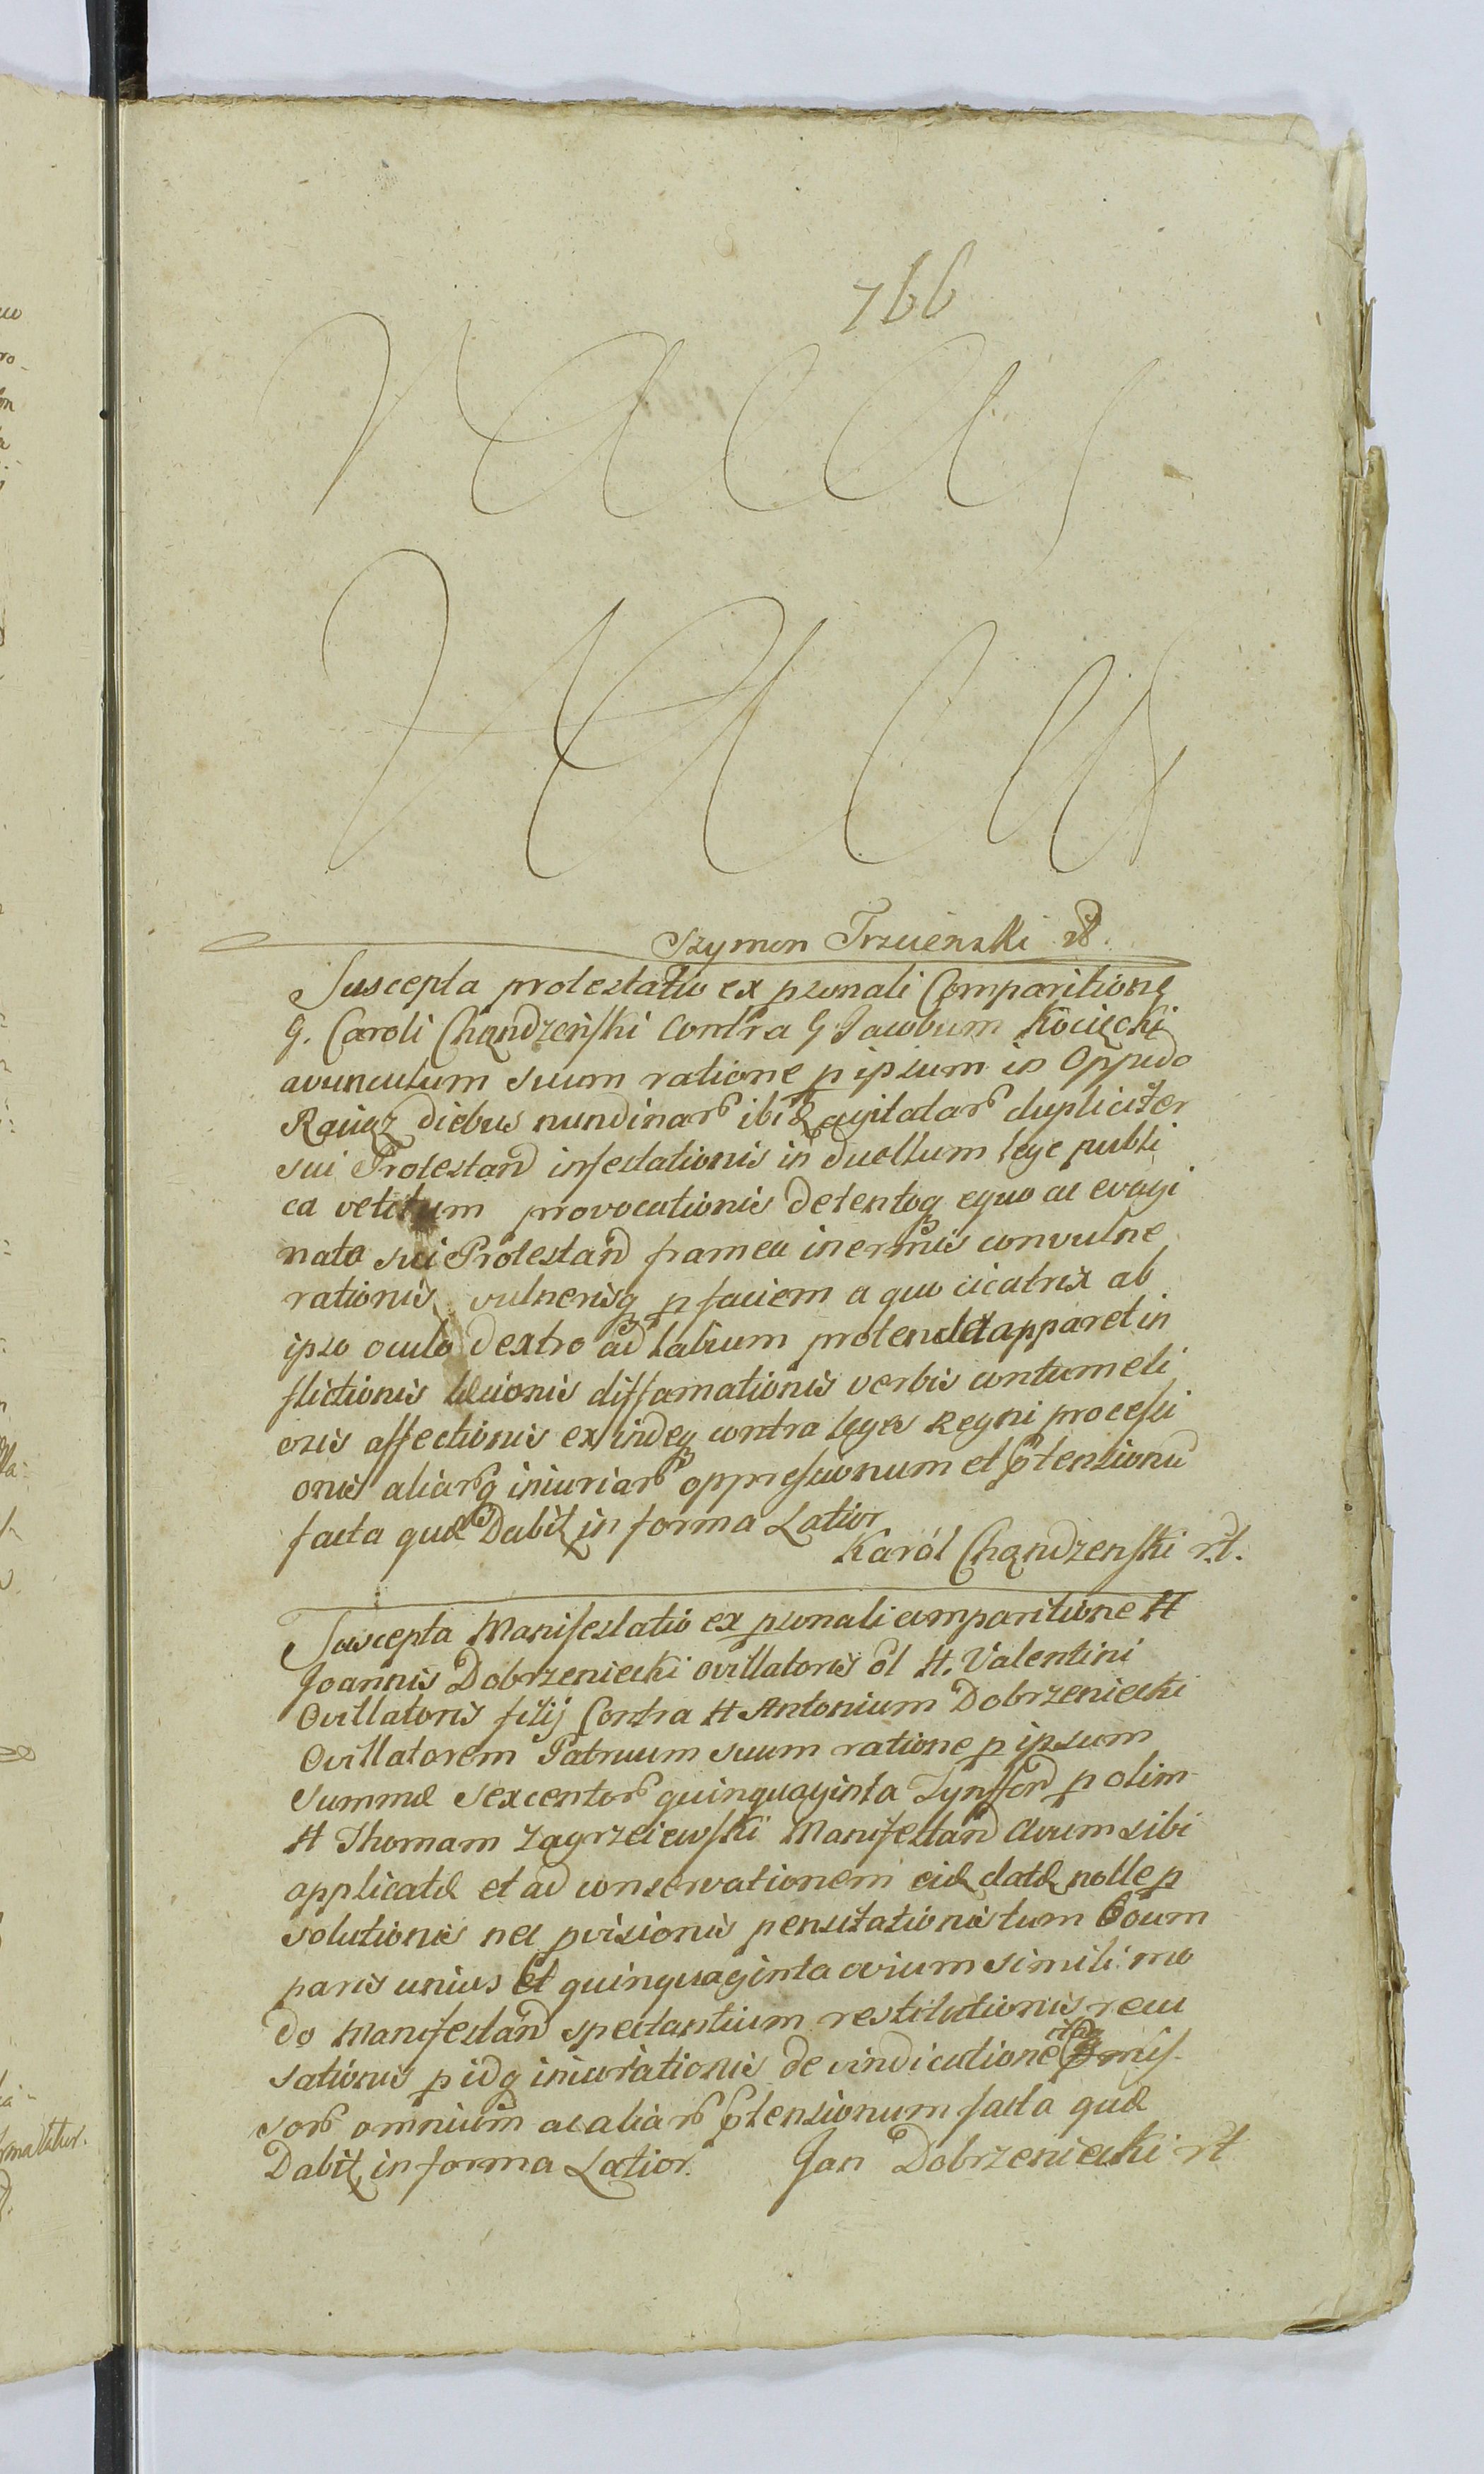 766
Vacat
Vacat
Szymon Trzcienski rt.
Suscepta protestatio ex psonali Comparitione
G. Caroli Chądzeński Contra G Jacobum Kocięcki
avunculum suum ratione p ipsum in Oppido
Raciąz diebus nundinar ibiđ agitatar dupliciter
sui Protestand infestationis in duellum lege publi
ca vetitum provocationis detentoq equo ac evagi
nata sui Protestand framea inermis convulne
rationis vulnerisq p faciem a quo cicatrix ab
ipso oculo dextro ad labium protendit apparet in
flictionis læsionis diffamationis verbis contumeli
osis affectionis exindeq contra leges Regni processi
onis aliarq iniuriar oppressionum et ptensionū
facta quæ Dabit in forma Latior
Karól Chądzenski rt.
Suscepta Manifestatio ex psonali comparitione H
Joannis Dobrzeniecki ovillatoris ol H. Valentini
Ovillatoris filij Contra H Antonium Dobrzeniecki
Ovillatorem Patruum suum ratione p ipsum
Summæ Sexcentor quinquaginta Tynffor p olim
H Thomam Zagrzeiewski Manifestand Avum sibi
applicatæ et ad conservationem eid datæ nolle p
solutionis nec pvisionis pensitationis tum Boum
paris unius Et quinquaginta ovium simili mo
do Manifestand spectantium restitutionis recu
sationis p idq iniuriationis de vindicatione pmis
sor omnium ac aliar ptensionum facta quæ
Dabit in forma Latior. Jan Dobrzeniecki rt